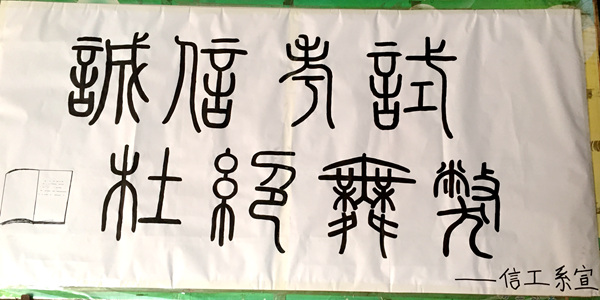 誠信考試
杜絕舞弊
——信工系宣